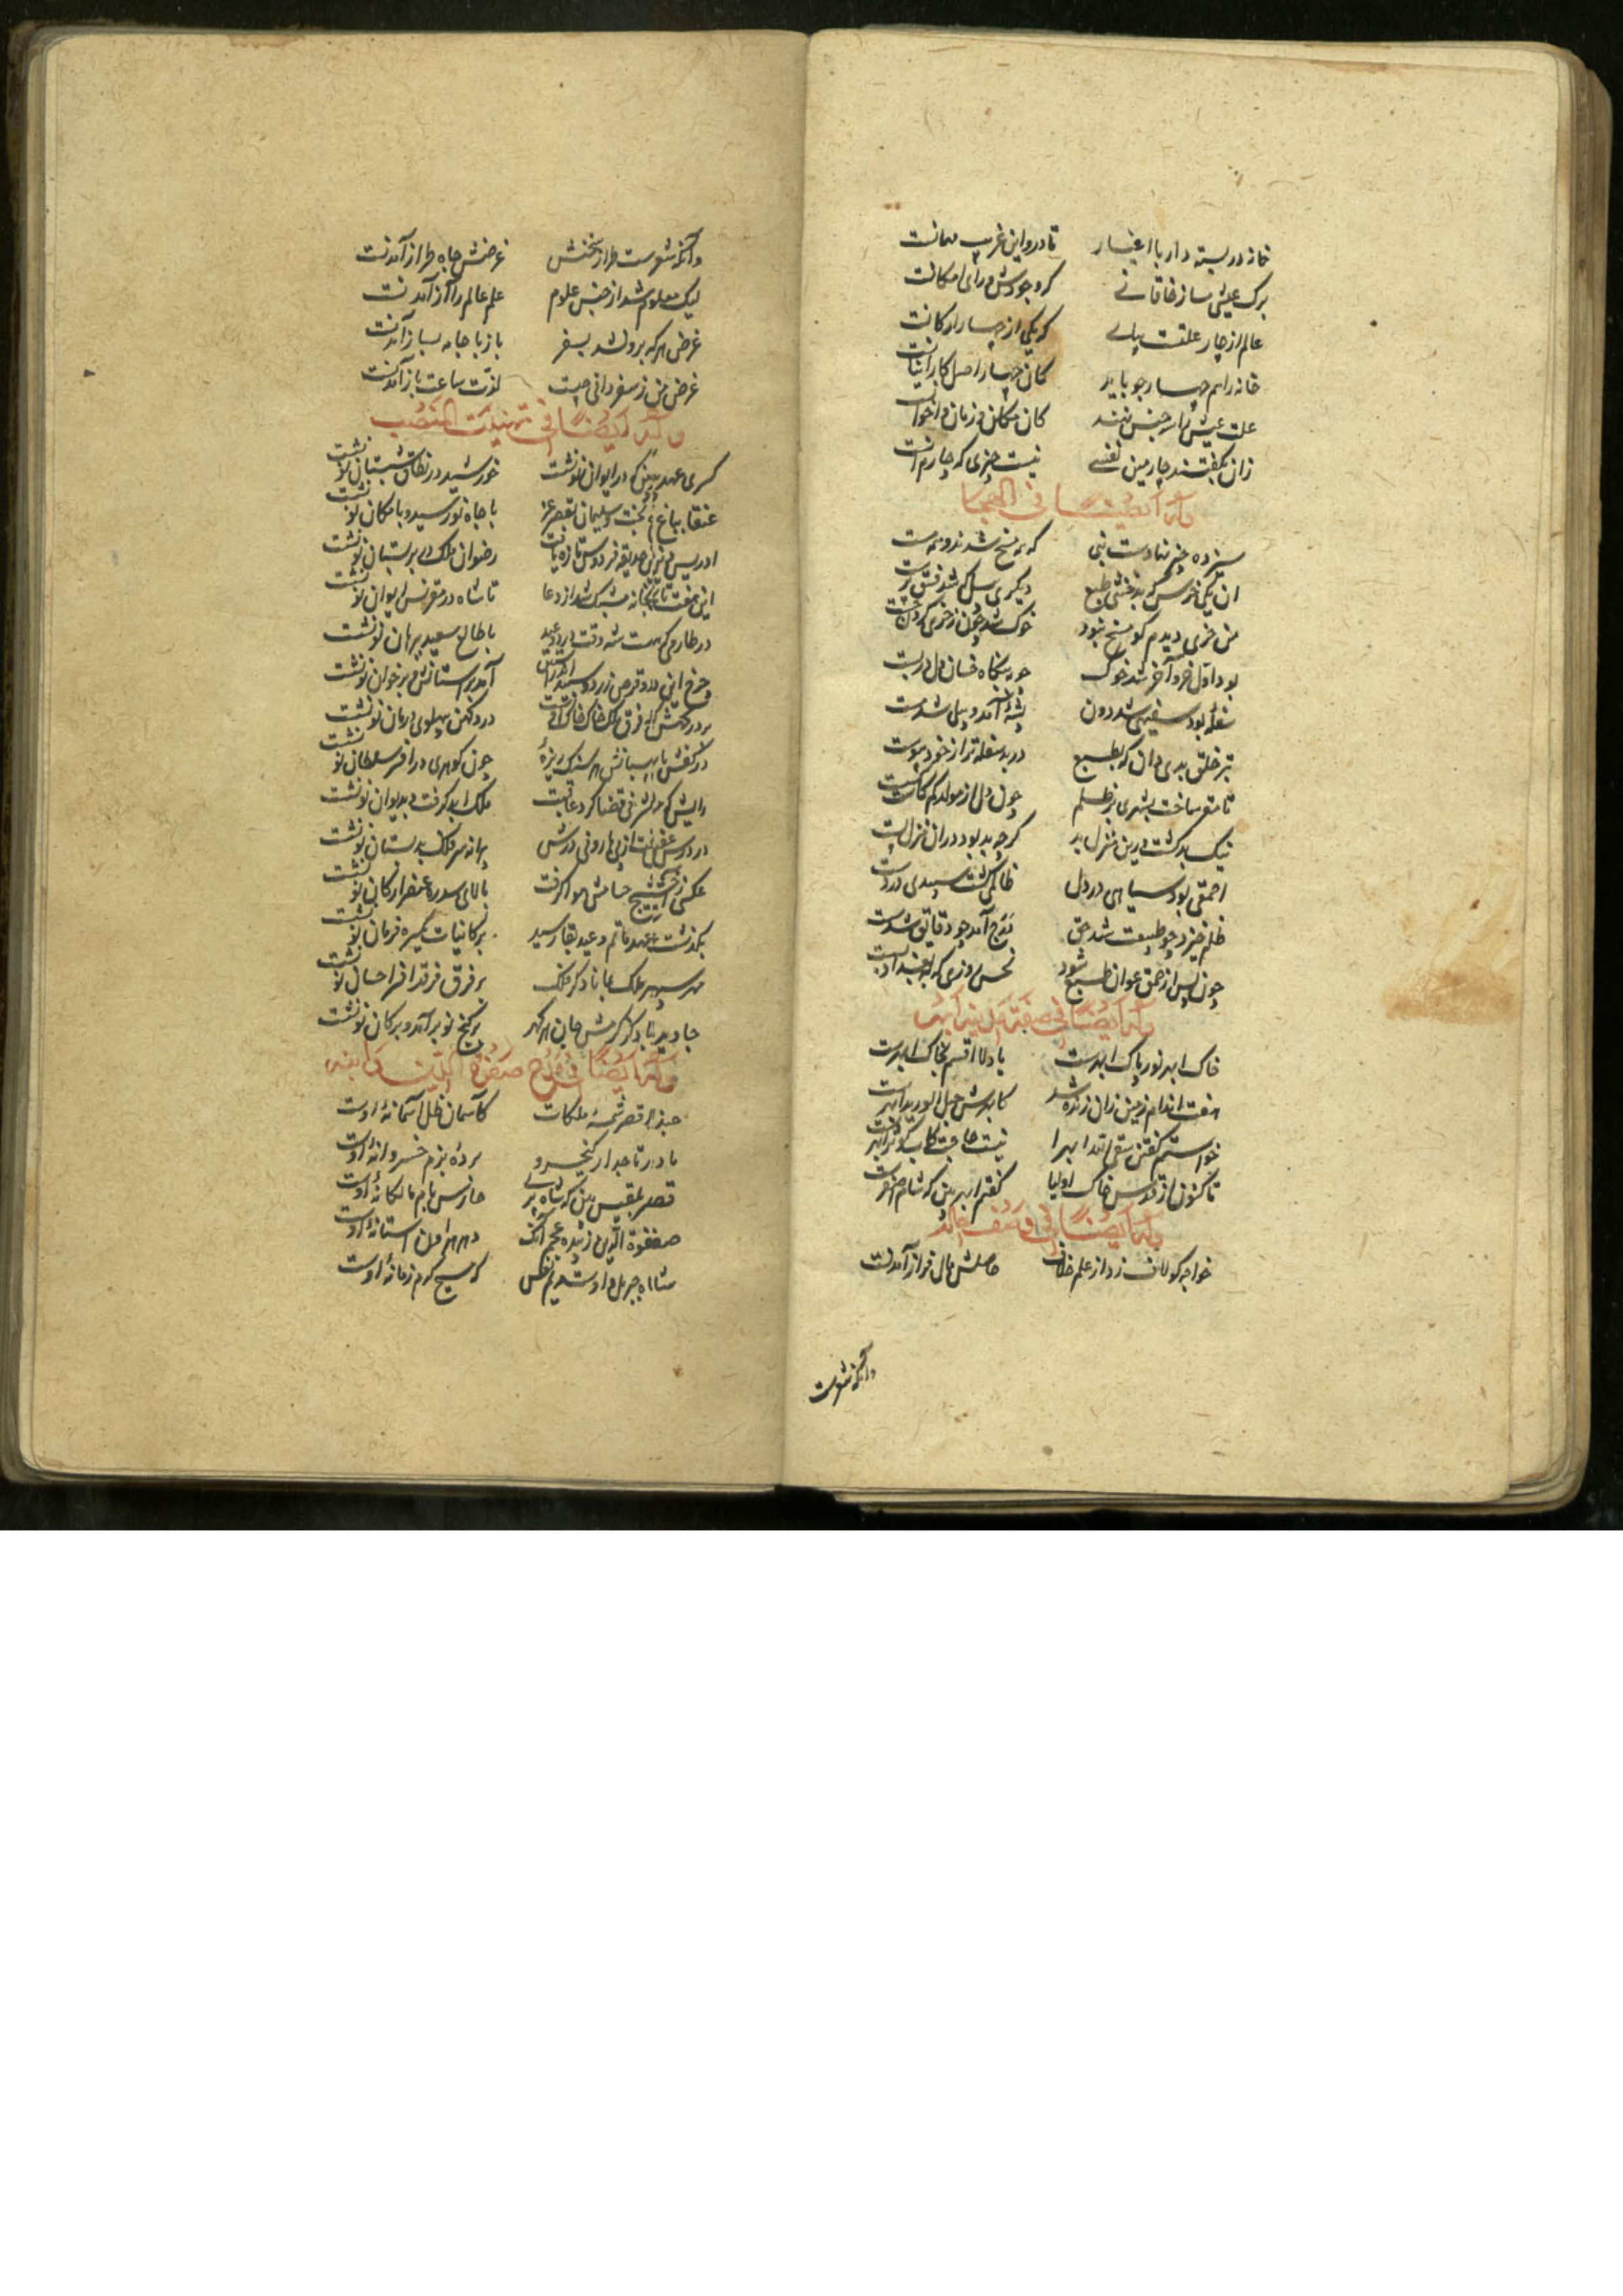 خانه دربسته دار با اغیار تا درو این غریب مهمانست
برگ عیشی بساز خاقانی که وجودش ورای امکانست
عالم از چار علت بپای که یکی از چهار ارکانست
خانه را هم چهار جو باید کان چهار اصل کار انیانست
علت عیش را سه جنس نهند کان مکان و زمان و اخوانست
زان بگفتند چارمین نفسی نیست چیزی که چارم آنست
وله ایضا فی الهجا
سیزده جنس نهادست نبی که همه مسخ شدند و همه هست
آن یکی خرس که بد خنثی طبع دیگری سگ که شد فسق پرست
من خری دیدم کو مسخ نبود خوک شد چون ز خری کردن
بود اول خر و آخر شد خوک خان و مان دل دربست
سفله بود سفیهی شد دون پشه آمد و پیلی شد مست
بر خلق بدی دان که بطبع در بد سفله‌تر از خود پیوست
تا متع ساخت بشهری بر ظلم چون دل از مولد کم کاست
نیک بد گشت درین منزل بد گرچه بد بود در آن منزل پست
احمقی بود سیاهی در دل ظالمی گشت سپیدی در دست
ظلم خیزد چو طبیعت شد حق موج آمد چو دقایق شد
چون پس از حمق عوان طبع شود نحس روزی که
وله ایضا فی صفة مدینه ابهر
خاک ابهر نور پاک ابهرست بادلا اقسم بخاک ابهرست
هفت اندام زمین زان زنده شد کابهرش حبل الورید ابهرست
خواستم گفتن سقی الله ابهرا نیست حاجت کاب کوثر ابهرست
تا کنون از قدس خاک اولیا گفتم ابهر بین که شام اصغرست
وله ایضا فی وصف حاله
خواجه کو لاف زد از علم خلاف حاصلش مال فراز آمدنست
وآنکه شعرست
وآنکه شعرست طراز سخنش غرضش جاه طراز آمدنست
لیک معلوم شد از جنس علوم علم عالم را آز آمدنست
غرض هر که برون شد بسفر باز با جامه بساز آمدنست
غرض من ز سفر دانی چیست لذت ساعت باز آمدنست
وله ایضا فی تهنیت المنصب
کسری عهد بین که در ایوان نو نشست خورشید در نطاق شبستان نو نشست
عنقا بباغ بخت و سلیمان بقصر عز با جاه نو رسید و بامکان نو نشست
ادریس وش حدیقه فردوس تازه یافت رضوان ملک بر بستان نو نشست
این هفت تابخانه مشبک شد از دعا تا شاه در مقرنس ایوان نو نشست
در طارمی که هست سه وقت درو دو عید با طالع سعید برهان نو نشست
چرخ این دو قرص زرد و سپید آمد بر آستانش و بر خوان نو نشست
بر درگهش که فرق فلک خاک خاک اوست درد کهن بپهلوی درمان نو نشست
در کفش پاسبانش هر سنگ ریزه چون گوهری در افسر سلطان نو نشست
رایش که مشرفی قضا کرد عاقبت ملک ابد گرفت و بدیوان نو نشست
در درس عفتش از پی هارونی درش پیرانه سر فلک بدبستان نو نشست
عکسی ز خشت ریخ حسامش هوا گرفت بالای سدره عنصر ارکان نو نشست
بگذشت عهد ماتم و عید بقا رسید بر کائنات یکسره فرمان نو نشست
مهر سپهر ملک بماناد کز فلک بر فرق فرقد افسر احسان نو نشست
جاوید باد کز کرمش جان هر گهر بر گنج نو برآمد و بر کان نو نشست
وله ایضا فی مدح صفوة الدین بانیه
حبذا قصر شمسه ملکات کآسمان ظل آستانه اوست
مادر تاجدار کیخسرو پرده بزم خسروانه اوست
قصر بلقیس بین که شاه پری حارس بام مالکانه اوست
صفوة الدین زبیده عجم آنک مهر آستانه اوست
شاه جبریل و او مریم نفس که مسیح کرم زمانه اوست